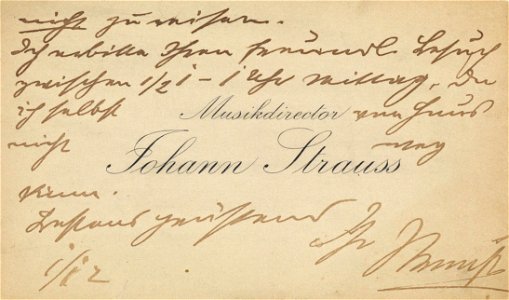 nicht zu reisen.
Ich erbitte Ihren freundl. Besuch
zwischen ½1 – 1 Uhr Mittag, da
ich selbst Musikdirector von Haus
nicht Johann Strauss weg
kann.
Bestens grüssend Ihr Strauss